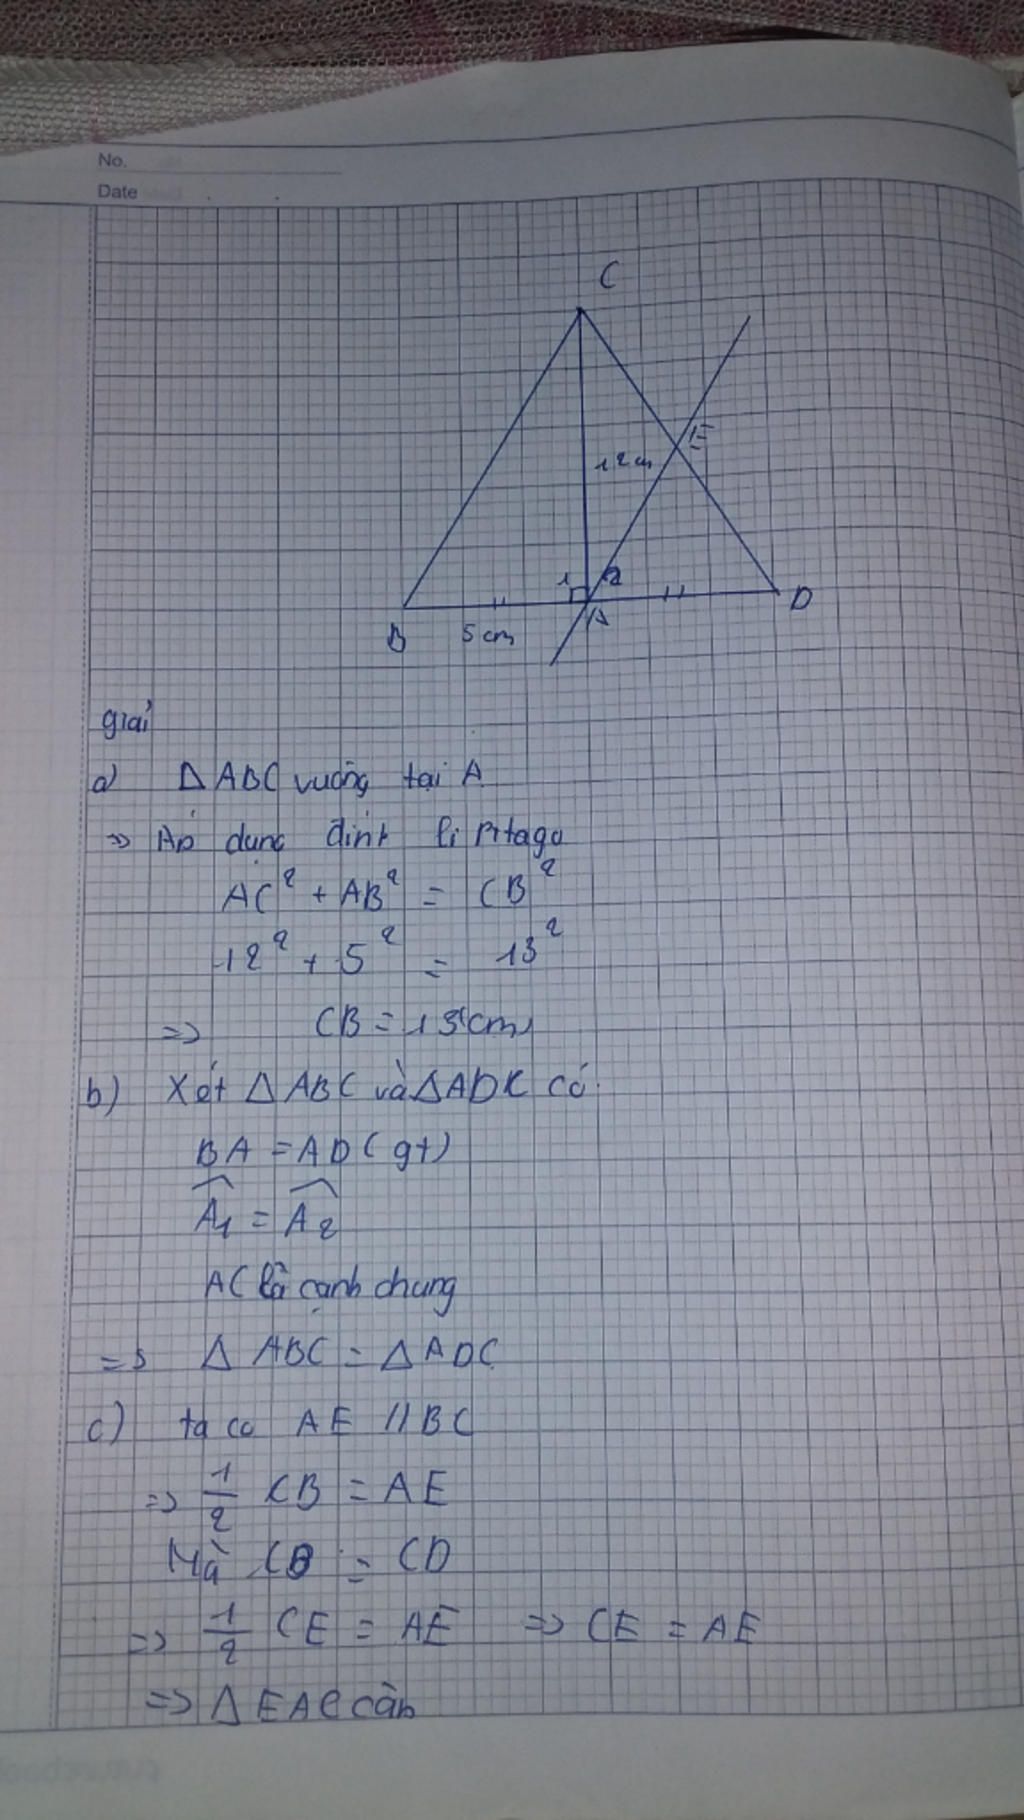 No.
Date
C
E
12cm
1 2
B
5 cm
A
D
giải
a) Δ ABC vuông tại A
=> Áp dụng định lí Pitago
AC² + AB² = CB²
12² + 5² = 13²
=> CB = 13 cm
b) Xét Δ ABC và Δ ADC có
BA = AD (gt)
Â₁ = Â₂
AC là cạnh chung
=> Δ ABC = Δ ADC
c) ta co AE // BC
=> 1/2 CB = AE
Mà CB = CD
=> 1/2 CE = AE => CE = AE
=> Δ EAC cân